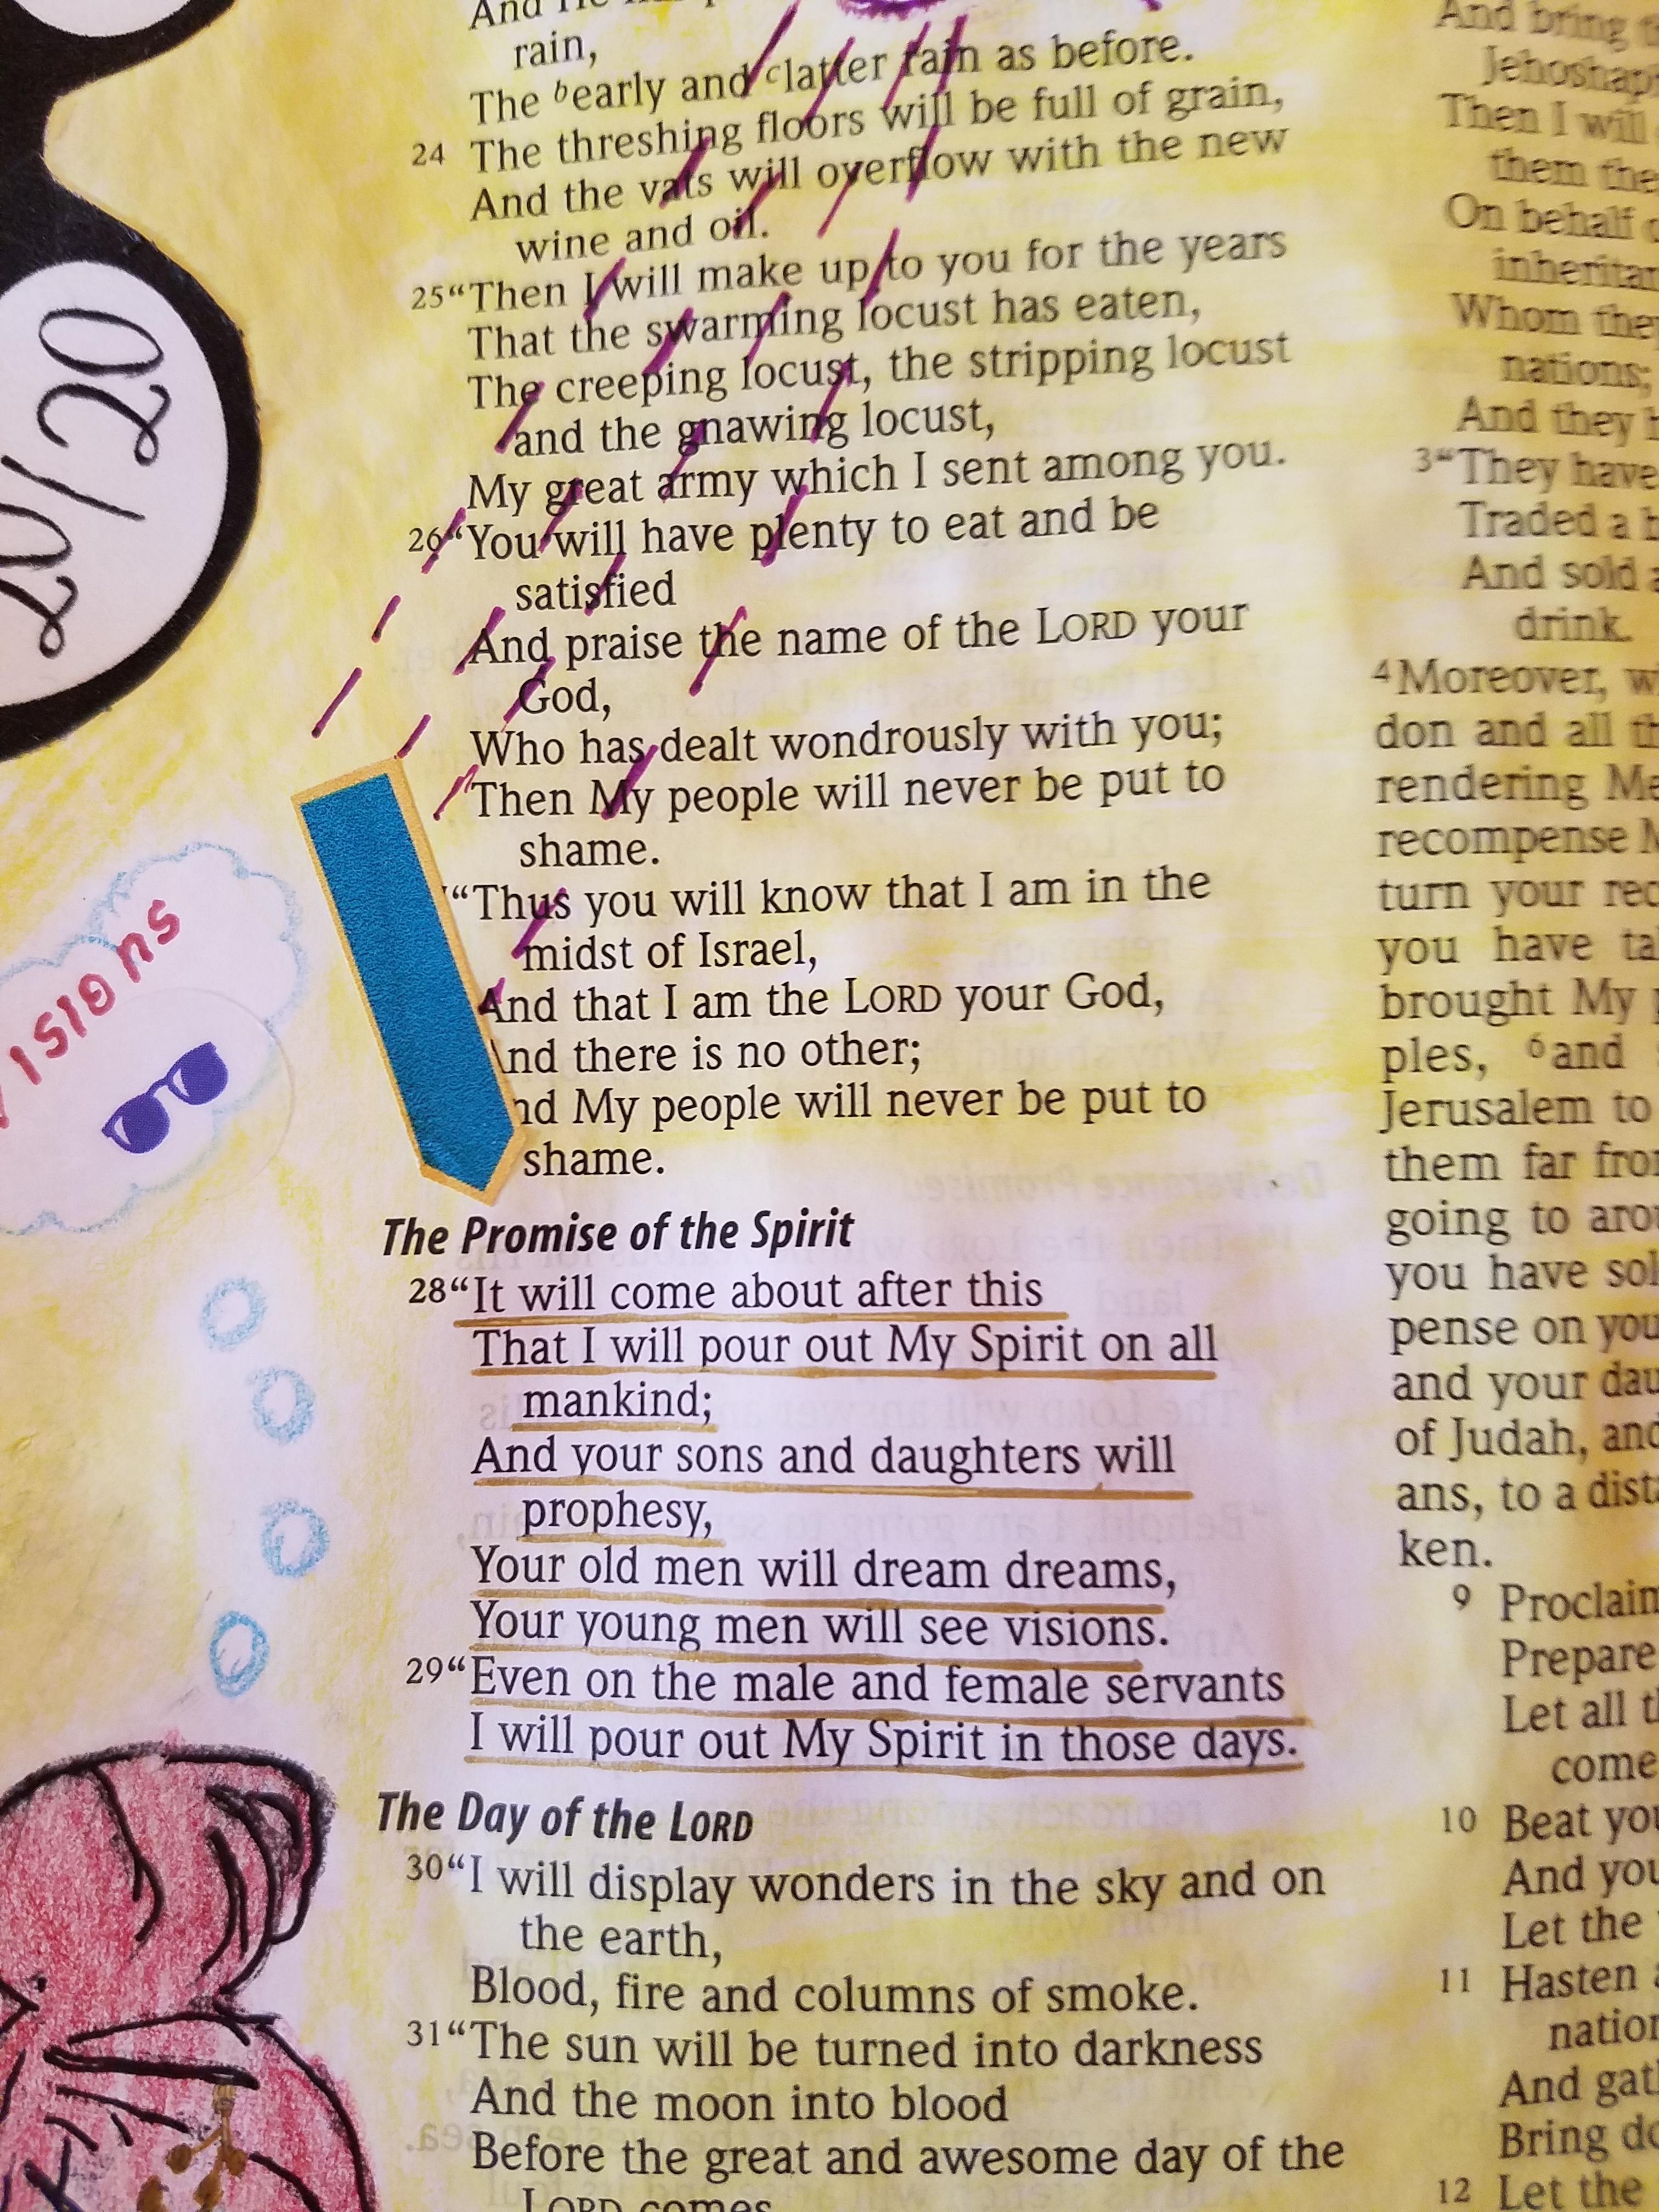 rain,
The bearly and clatter rain as before.
24 The threshing floors will be full of grain,
And the vats will overflow with the new
wine and oil.
25 “Then I will make up to you for the years
That the swarming locust has eaten,
The creeping locust, the stripping locust
and the gnawing locust,
My great army which I sent among you.
26 “You will have plenty to eat and be
satisfied
And praise the name of the LORD your
God,
Who has dealt wondrously with you;
Then My people will never be put to
shame.
“Thus you will know that I am in the
midst of Israel,
And that I am the LORD your God,
And there is no other;
nd My people will never be put to
shame.
The Promise of the Spirit
28 “It will come about after this
That I will pour out My Spirit on all
mankind;
And your sons and daughters will
prophesy,
Your old men will dream dreams,
Your young men will see visions.
29 “Even on the male and female servants
I will pour out My Spirit in those days.
The Day of the LORD
30 “I will display wonders in the sky and on
the earth,
Blood, fire and columns of smoke.
31 “The sun will be turned into darkness
And the moon into blood
Before the great and awesome day of the
LORD comes
20/20
visions
And bring
Then I will
them
On behalf
Whom they
nations;
And they
3 “They have
Traded a
And sold
drink.
4 Moreover,
don and all
rendering
recompense
turn your
you have
brought My
ples, 6 and
Jerusalem to
them far from
going to
you have
pense on you
and your
of Judah, and
ans, to a
ken.
9 Proclaim
Prepare
Let all
come
10 Beat
And
Let the
11 Hasten
And
Bring
12 Let the